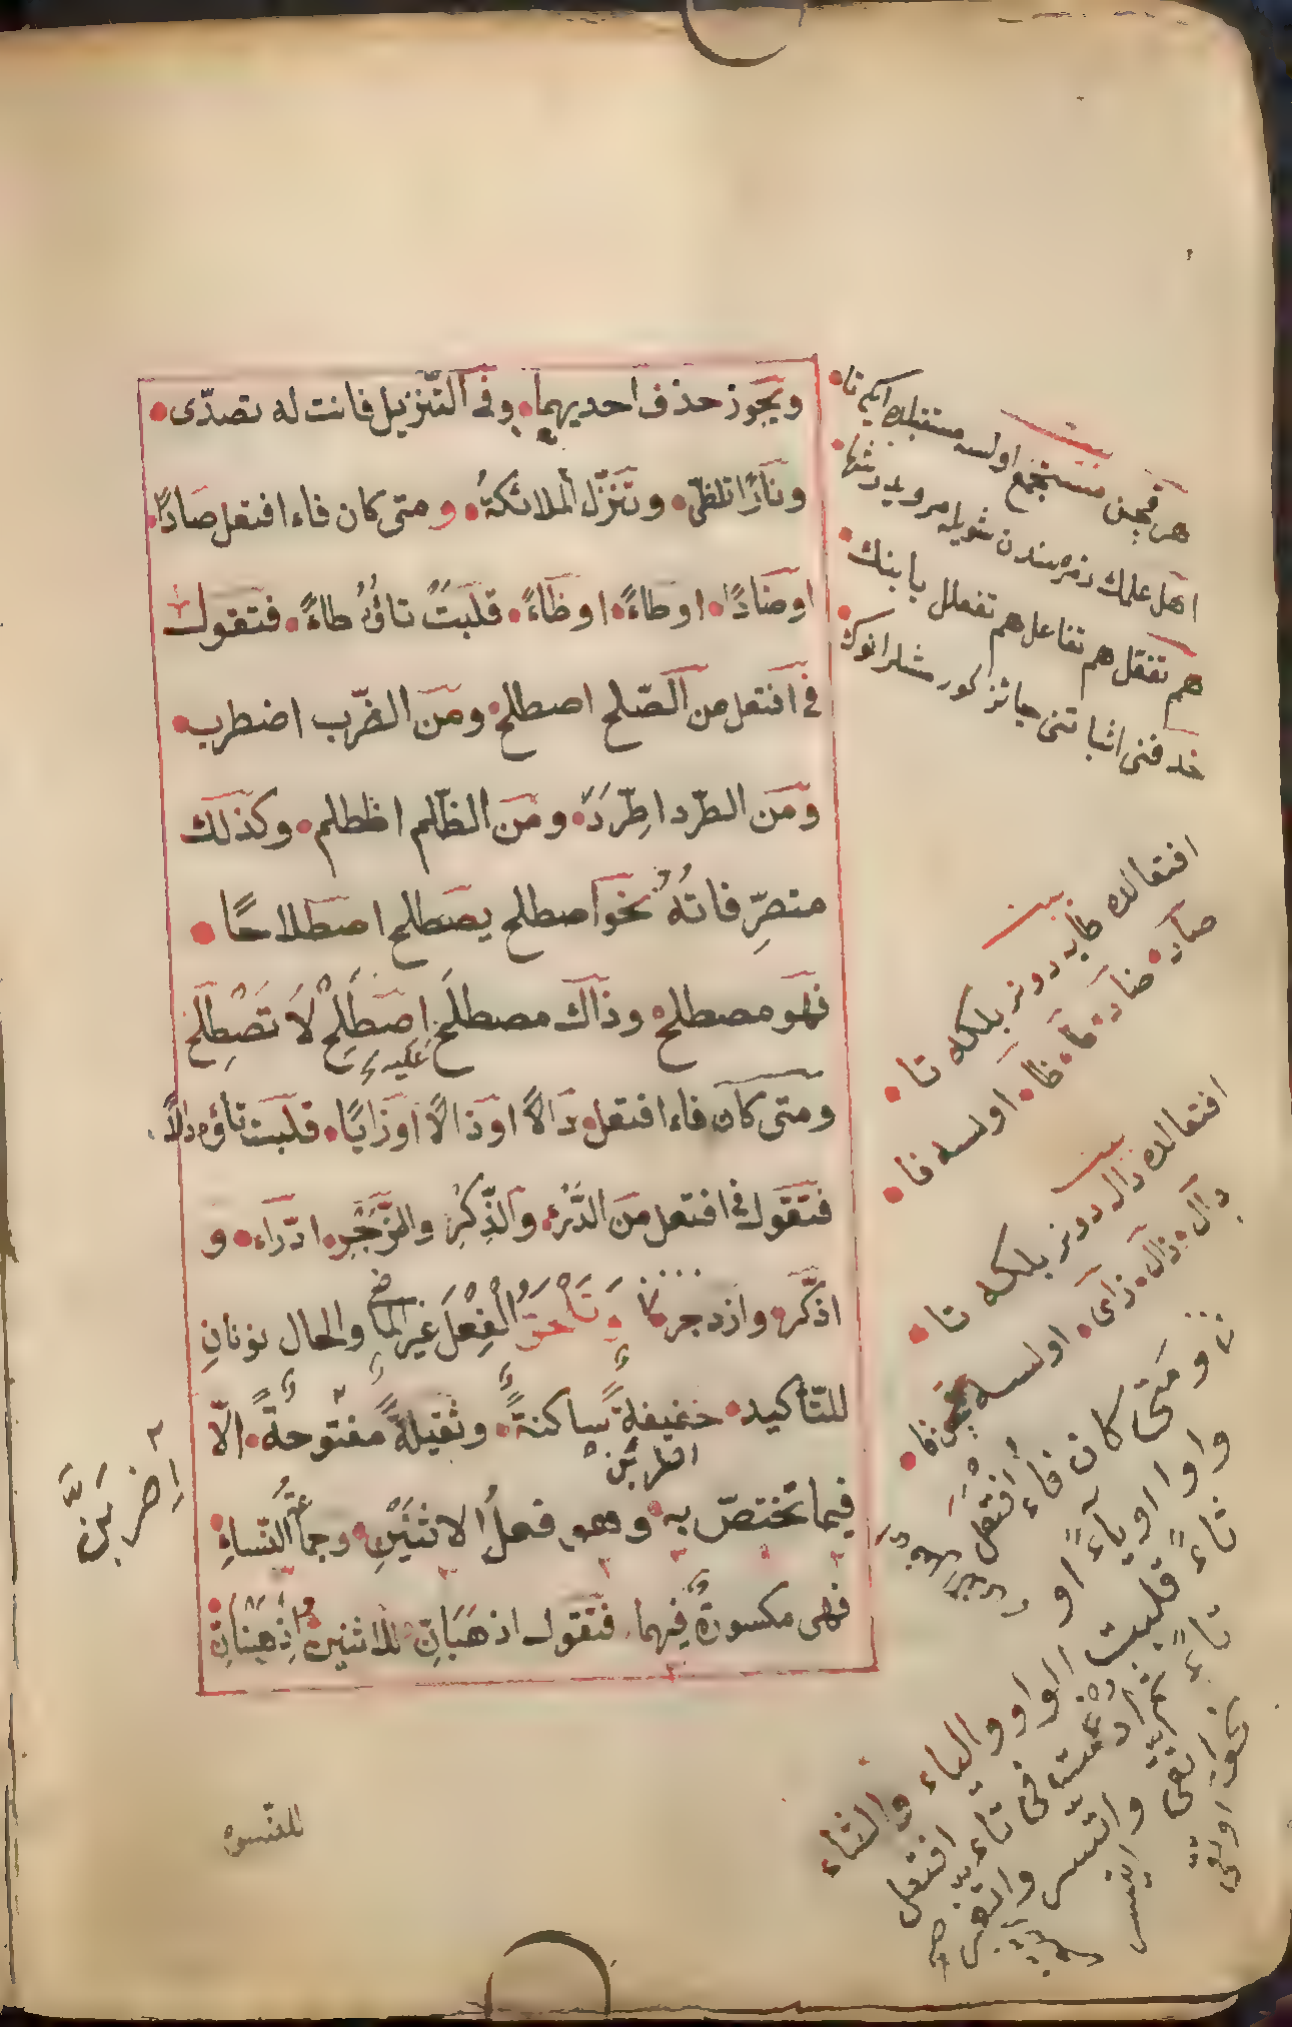 ويجوز حذف احديهما وفى التنزيل فانت له تصدّى
ونارًا تلظّى وتنزّل الملائكةُ ومتى كان فاء افتعل صادًا
اوضادًا اوطاءً اوظاءً قلبتْ تاؤُهُ طاءً فتقول
فى افتعل من الصّلح اصطلح ومن الضّرب اضطرب
ومن الطّرد اطّردَ ومن الظّلم اظطلم وكذلك
متصرّفاتُهُ نحو اصطلح يصطلح اصطلاحًا
فهو مصطلح وذاك مصطلَح اِصْطَلِحْ لَا تَصْطَلِحْ
عليه
ومتى كان فاء افتعل دالًا اوذالًا اوزايًا قلبت تاؤه دالًا
فتقول فى افتعل من الدَّرْءِ والذِّكْرِ والزَّجْرِ ادّراء و
اذّكّر وازدجر وتَلْحَقُ الْفِعْلَ غيرَ الماضى والحال نونانِ
للتّأكيد خفيفةٌ ساكنةٌ وثقيلةٌ مفتوحةٌ الّا
فيما تختصّ به وهو فعلُ الاثنَيْنِ وجماعةِ النّساءِ
فهى مكسورةٌ فيهما فتقول اذهَبَانِّ للاثنين واذْهَبْنَانِّ
للنّسوة
هر قچن مستجمع اولسه مستقبلده ايكى تا
اهل علمك
هم تفعّل هم تفاعل هم تفعلل بابنك
حذفنى اثباتنى جائز كور
بيت
افتعالده طايه دونر بلكه تا
صاد ضاد طا ظا اولسه فا
بيت
افتعالده دال دونر بلكه تا
دال ذال زاى اولسه فا
ومتى كان فاء افتعل
واوا اوياءً او
ثاءً قلبت الواو والياء والثاء
تاءً ثمّ ادغمت فى تاء افتعل
نحو اتّقى واتّسر واتّغر
اِضْرِبَنَّ